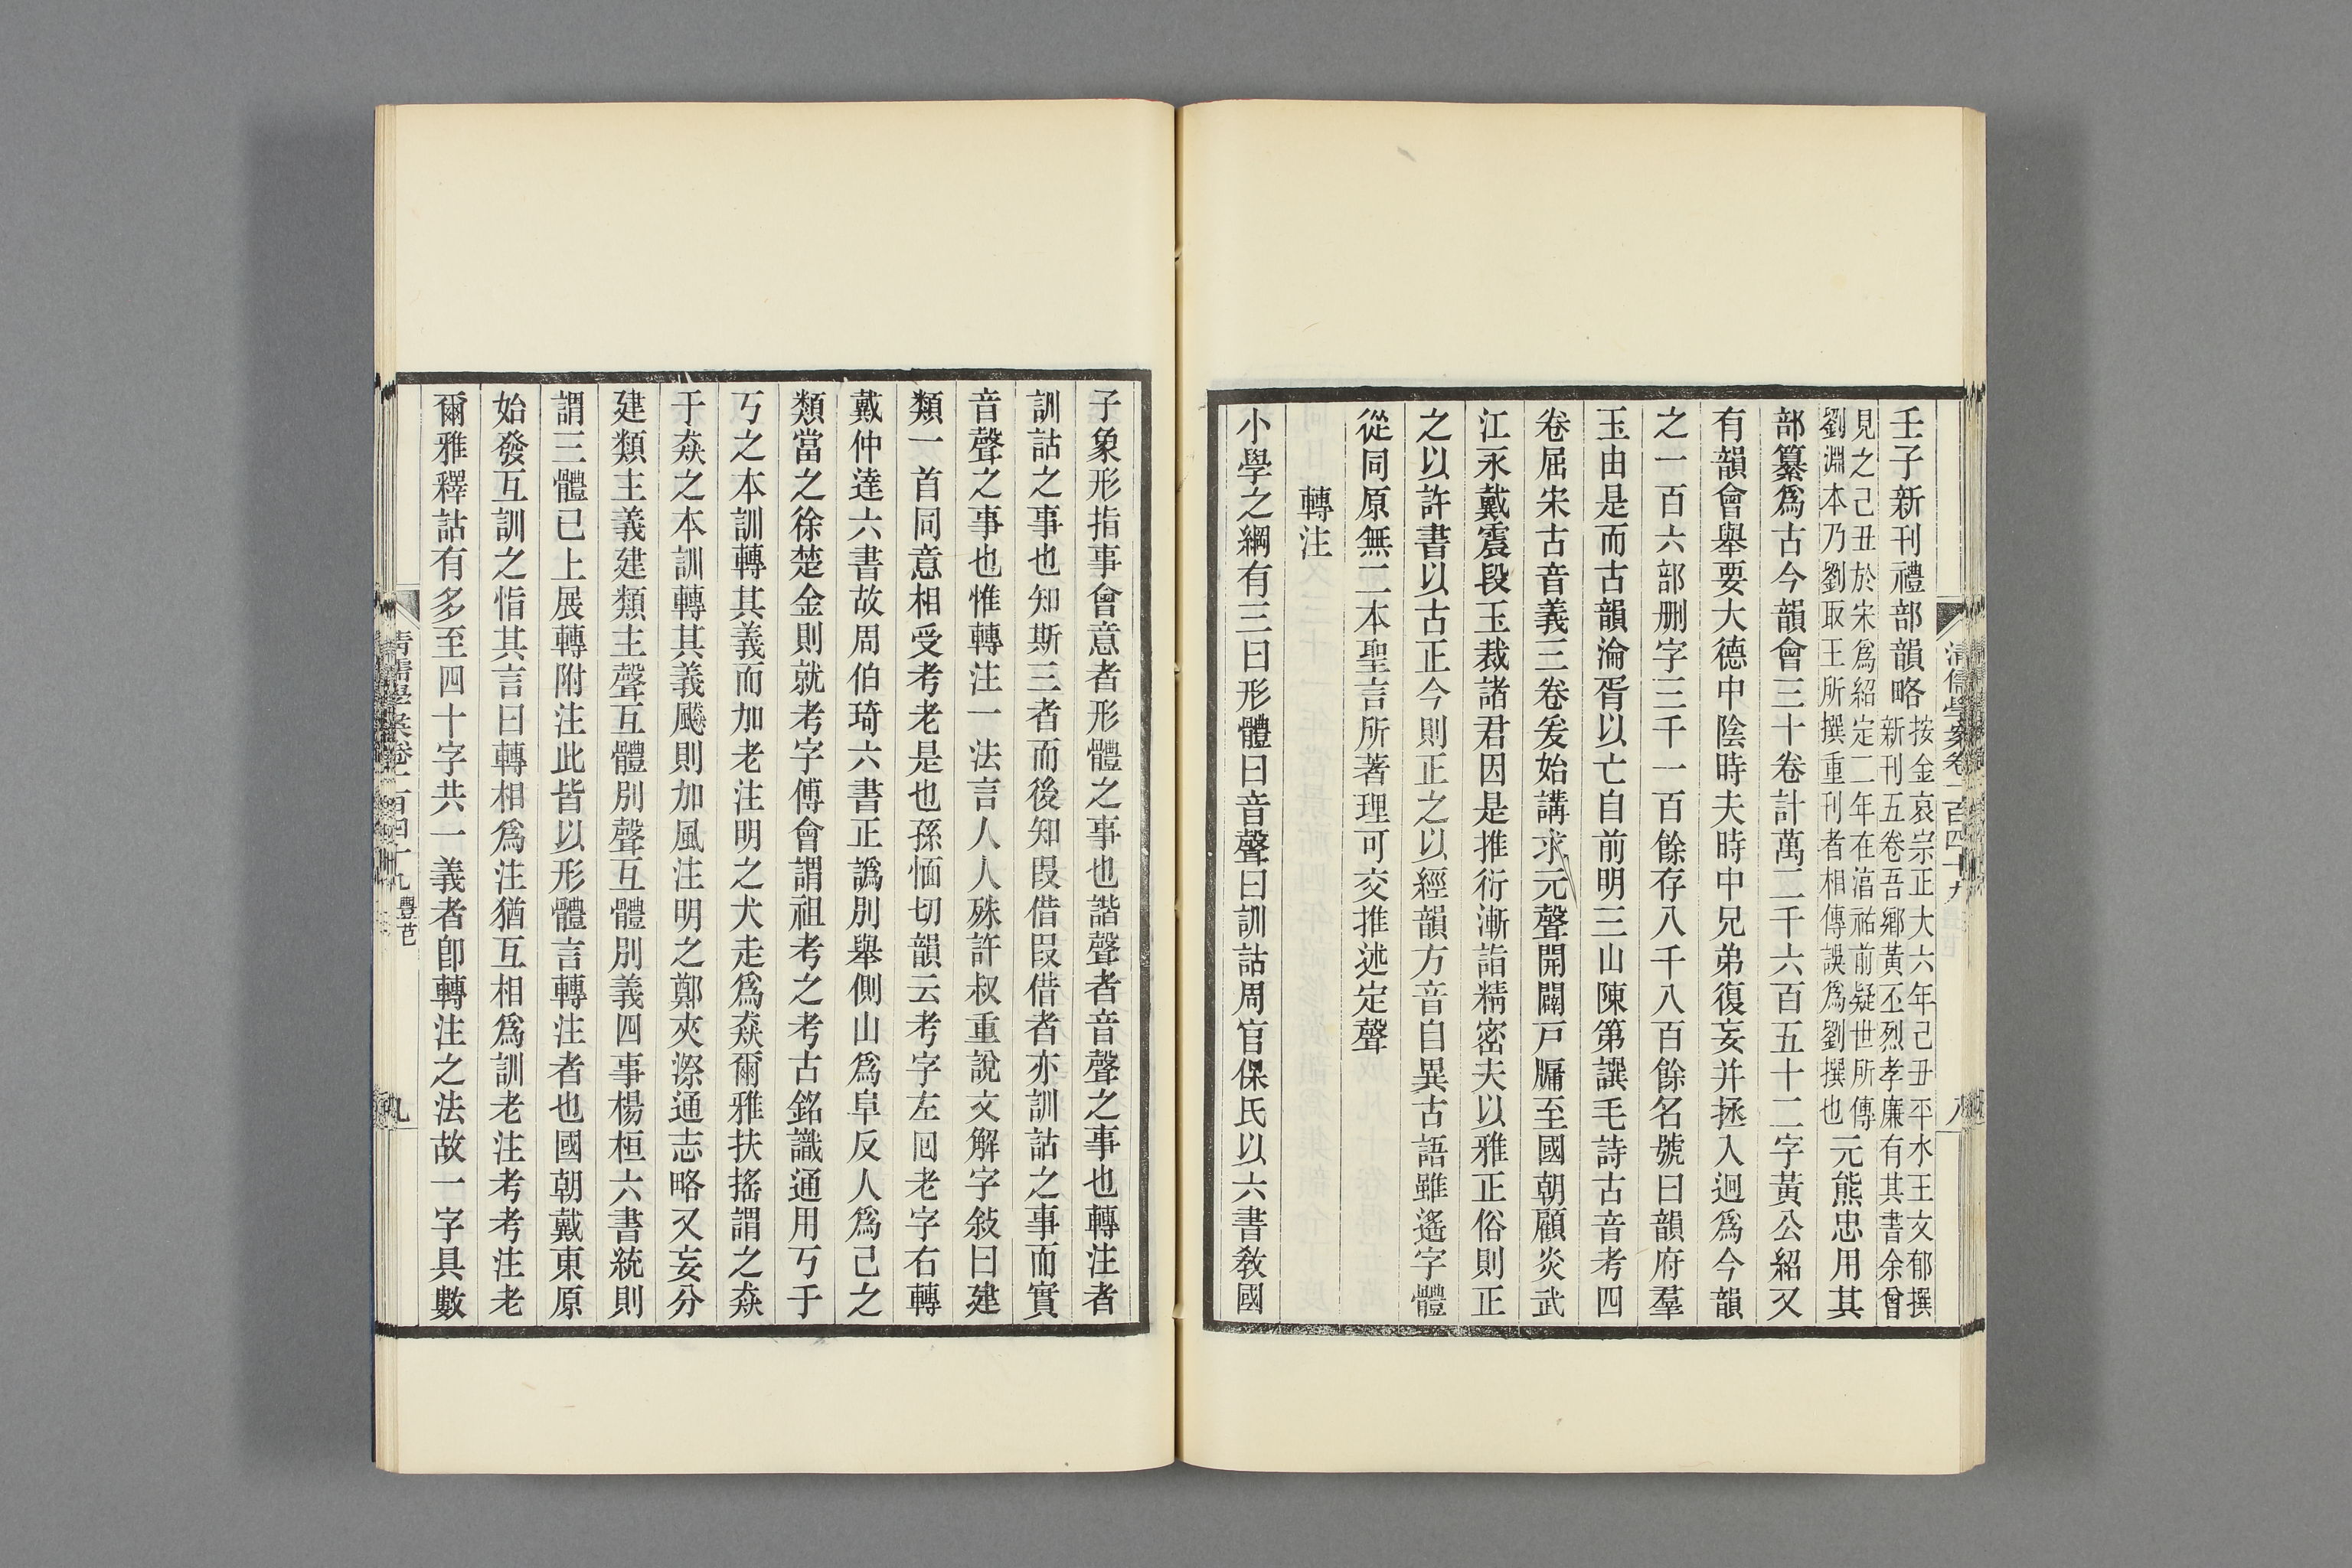 清儒學案卷一百四十九
八
壬子新刊禮部韻略按金哀宗正大六年己丑平水王文郁撰
新刊五卷吾鄉黃丕烈孝廉有其書余曾
見之己丑於宋爲紹定二年在淳祐前疑世所傳
劉淵本乃劉取王所撰重刊者相傳誤爲劉撰也元熊忠用其
部纂爲古今韻會三十卷計萬二千六百五十二字黃公紹又
有韻會舉要大德中陰時夫時中兄弟復妄并拯入迥爲今韻
之一百六部刪字三千一百餘存八千八百餘名號曰韻府羣
玉由是而古韻淪胥以亡自前明三山陳第譔毛詩古音考四
卷屈宋古音義三卷爰始講求元聲開闢戸牖至國朝顧炎武
江永戴震段玉裁諸君因是推衍漸詣精密夫以雅正俗則正
之以許書以古正今則正之以經韻方音自異古語雖遙字體
從同原無二本聖言所著理可交推述定聲
轉注
小學之綱有三曰形體曰音聲曰訓詁周官保氏以六書敎國
子象形指事會意者形體之事也諧聲者音聲之事也轉注者
訓詁之事也知斯三者而後知叚借叚借者亦訓詁之事而實
音聲之事也惟轉注一法言人人殊許叔重說文解字敍曰建
類一首同意相受考老是也孫愐切韻云考字左回老字右轉
戴仲達六書故周伯琦六書正譌別舉側山爲阜反人爲匕之
類當之徐楚金則就考字傅會謂祖考之考古銘識通用丂于
丂之本訓轉其義而加老注明之犬走爲猋爾雅扶搖謂之猋
于猋之本訓轉其義飇則加風注明之鄭夾漈通志略又妄分
建類主義建類主聲互體別聲互體別義四事楊桓六書統則
謂三體已上展轉附注此皆以形體言轉注者也國朝戴東原
始發互訓之恉其言曰轉相爲注猶互相爲訓老注考考注老
爾雅釋詁有多至四十字共一義者卽轉注之法故一字具數
清儒學案卷一百四十九 豐芑
九